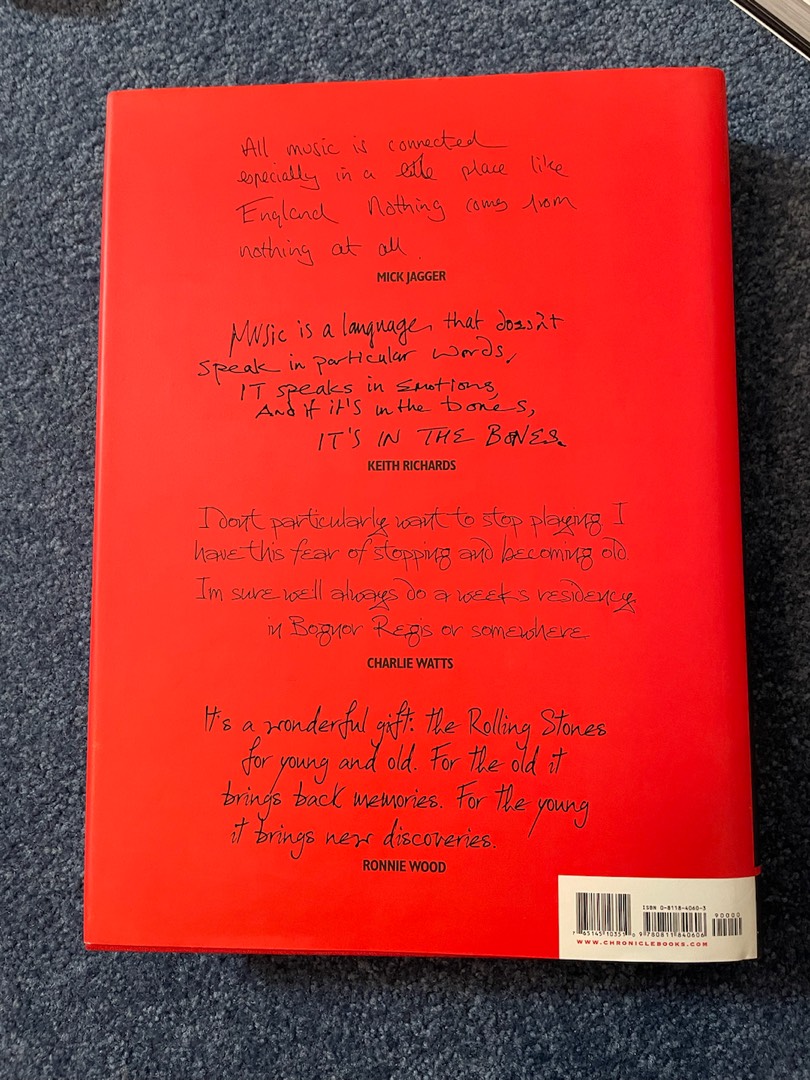 All music is connected
especially in a little place like
England Nothing comes from
nothing at all.
MICK JAGGER
Music is a language, that doesn't
speak in particular words,
IT speaks in Emotions,
And if it's in the bones,
IT'S IN THE BONES.
KEITH RICHARDS
I dont particularly want to stop playing I
have this fear of stopping and becoming old.
Im sure well always do a weeks residency
in Bognor Regis or somewhere
CHARLIE WATTS
It's a wonderful gift: the Rolling Stones
for young and old. For the old it
brings back memories. For the young
it brings new discoveries.
RONNIE WOOD
ISBN 0-8118-4060-3
90000
7 65145 10355 0
9 780811 840606
WWW.CHRONICLEBOOKS.COM